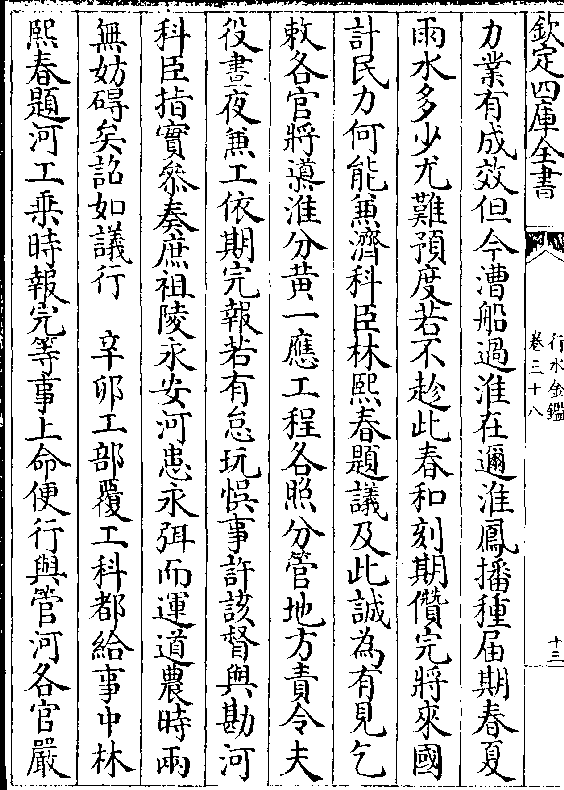 欽定四庫全書
行水金鑑
卷三十八
十三
力業有成效但今漕船過淮在邇淮鳳播種届期春夏
雨水多少尤難預度若不趁此春和刻期儹完將來國
計民力何能兼濟科臣林熙春題議及此誠為有見乞
敕各官將導淮分黄一應工程各照分管地方責令夫
役晝夜兼工依期完報若有怠玩悞事許該督與勘河
科臣指實叅奏庶祖陵永安河患永弭而運道農時兩
無妨碍矣詔如議行　辛卯工部覆工科都給事中林
熙春題河工乗時報完等事上命便行與管河各官嚴